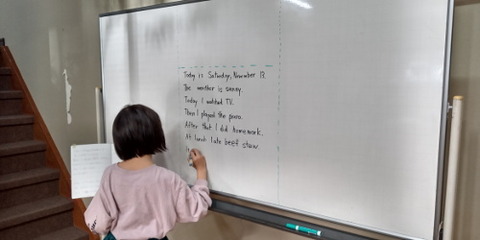 Today is Saturday, November 13.
The weather is sunny.
Today I watched T.V.
Then I played the piano.
After that I did homework.
At lunch I ate beef stew.